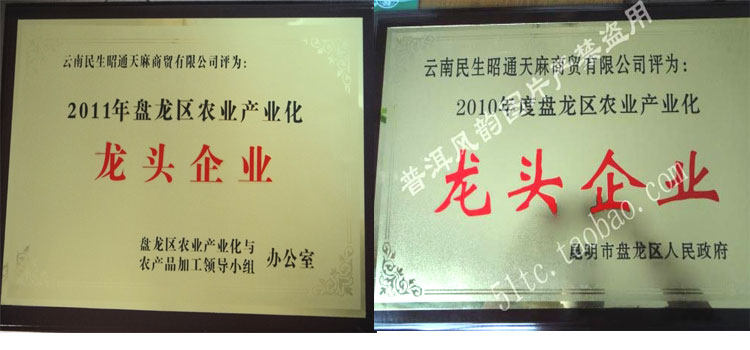 云南民生昭通天麻商贸有限公司评为:
2011年盘龙区农业产业化
龙头企业
盘龙区农业产业化与
农产品加工领导小组 办公室
云南民生昭通天麻商贸有限公司评为:
2010年度盘龙区农业产业化
龙头企业
昆明市盘龙区人民政府
普洱风韵图片严禁盗用
51tc.taobao.com